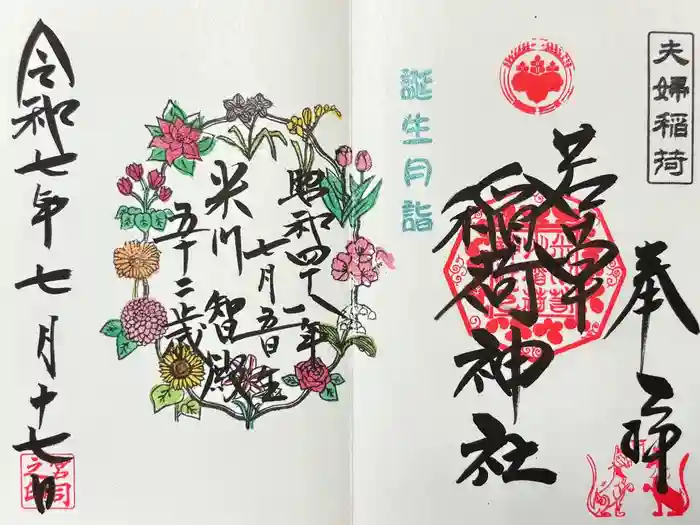 夫婦稲荷
奉拝
若草
稲荷神社
誕生月詣
昭和四十八年
七月五日生
米川 智
五十二歳
令和七年七月十七日
宮司之印